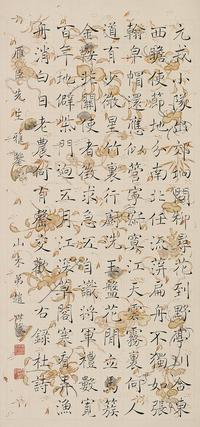 元戎小隊出郊坰問柳尋花到野亭川合東
西瞻使節地分南北任流萍扁舟不獨如張
翰皁帽還應似管寧寂寞江天雲霧裏何人
道有少微星竹裏行廚洗玉盤花間立馬簇
金鞍非關使者徵求急自識將軍禮數寬
百年地僻柴門迥五月江深草閣寒看弄漁
舟消白日老農何有罄交歡右錄杜詩
雁臣先生雅鑒 弟趙